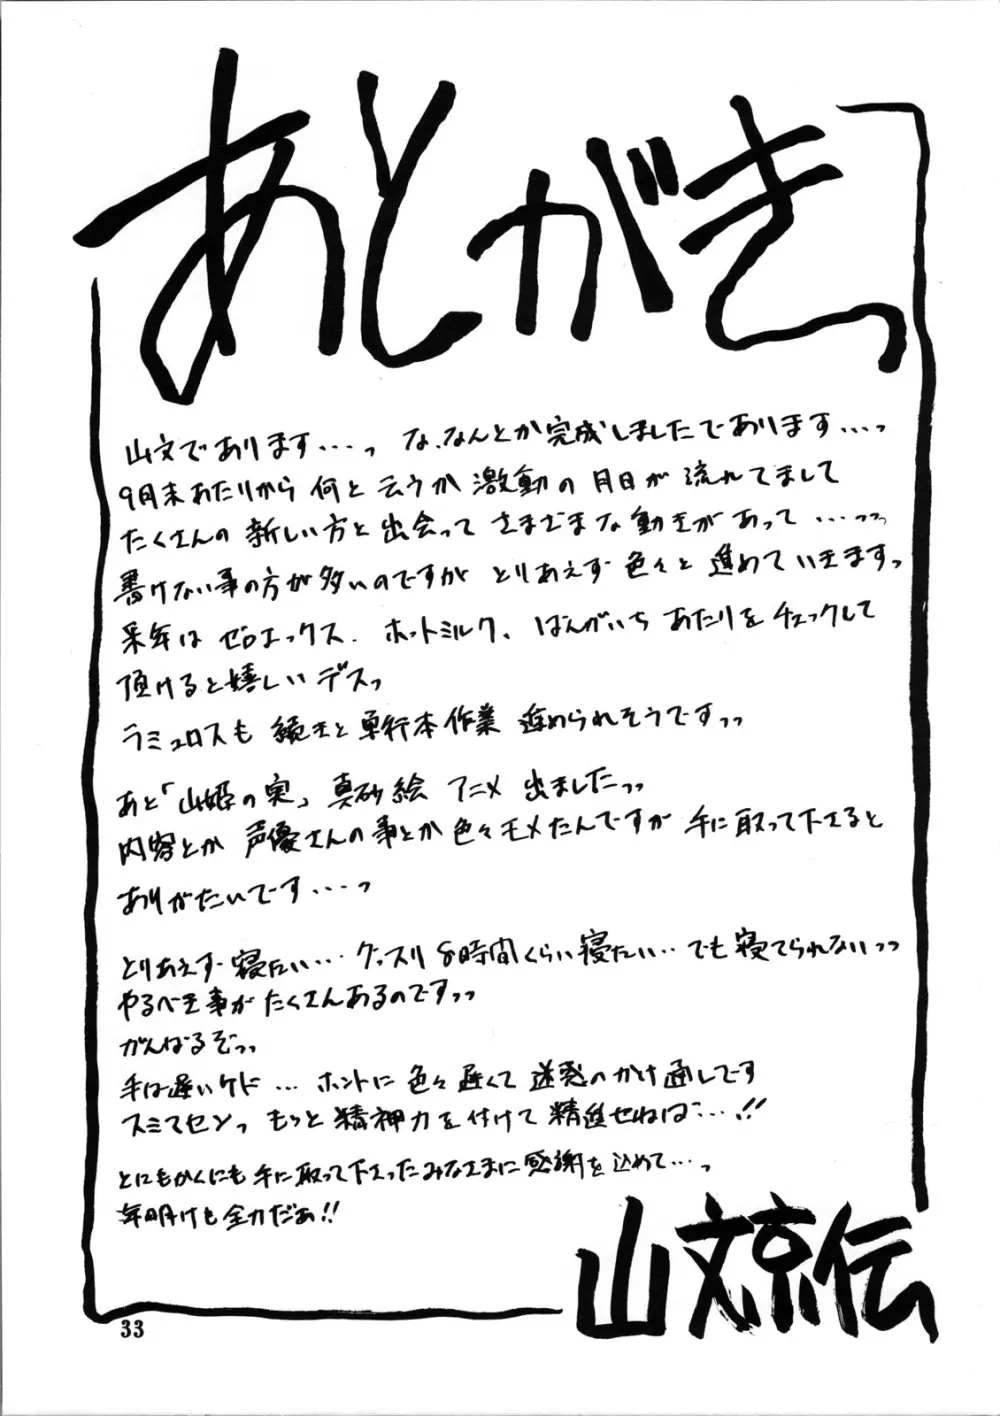 あとがきっ
山文であります・・・っ な、なんとか完成しましたであります・・・っ
9月末あたりから 何と云うか 激動の 月日が 流れてまして
たくさんの 新しい方と 出会って さまざまな 動きがあって・・・っっ
書けない事の方が多いのですが とりあえず 色々と 進めていきますっ
来年は ゼロエックス、ホットミルク、ばんがいち あたりを チェックして
頂けると嬉しい デスっ
ラミュロスも 続きと 単行本作業 進められそうですっっ
あと「山姫の実」真砂絵 アニメ 出ましたっっ
内容とか 声優さんの事とか 色々モメたんですが 手に取って下さると
ありがたいです・・・っ
とりあえず 寝たい・・・ グッスリ 8時間くらい 寝たい・・でも 寝てられないっっ
やるべき事が たくさんあるのですっっ
がんばるぞっっ
手は遅いケド・・・ ホントに 色々 遅くて 迷惑のかけ通しです
スミマセンっ もっと 精神力を 付けて 精進せねば・・・!!
とにもかくにも 手に取って下さったみなさまに 感謝を込めて・・・っ
年明けも 全力だぁ!!
山文京伝
33